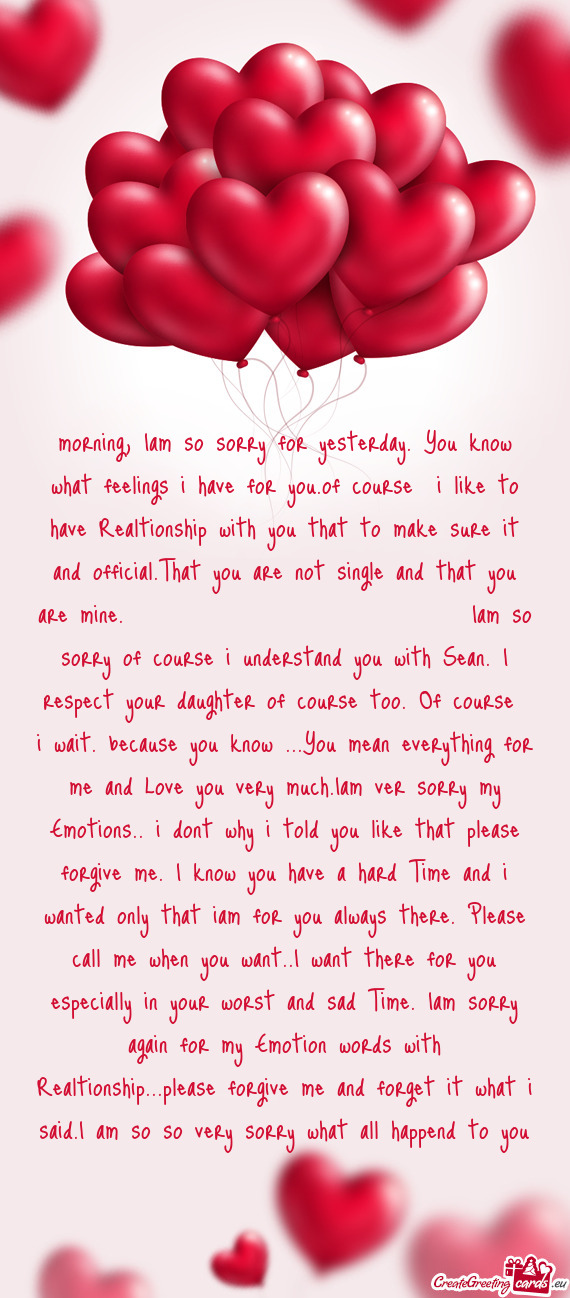 morning, Iam so sorry for yesterday. You know
what feelings i have for you.of course i like to
have Realtionship with you that to make sure it
and official.That you are not single and that you
are mine. Iam so
sorry of course i understand you with Sean. I
respect your daughter of course too. Of course
i wait. because you know ...You mean everything for
me and Love you very much.Iam ver sorry my
Emotions.. i dont why i told you like that please
forgive me. I know you have a hard Time and i
wanted only that iam for you always there. Please
call me when you want..I want there for you
especially in your worst and sad Time. Iam sorry
again for my Emotion words with
Realtionship...please forgive me and forget it what i
said.I am so so very sorry what all happend to you
CreateGreetingcards.eu